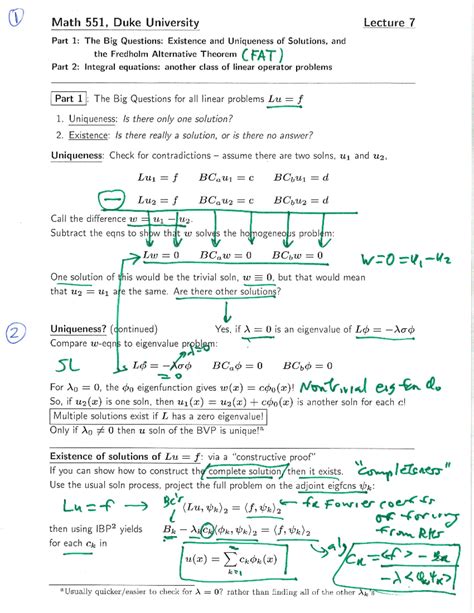 ①
Math 551, Duke University Lecture 7
Part 1: The Big Questions: Existence and Uniqueness of Solutions, and
the Fredholm Alternative Theorem (FAT)
Part 2: Integral equations: another class of linear operator problems
Part 1: The Big Questions for all linear problems Lu = f
1. Uniqueness: Is there only one solution?
2. Existence: Is there really a solution, or is there no answer?
Uniqueness: Check for contradictions – assume there are two solns, u₁ and u₂,
Lu₁ = f BCₐu₁ = c BC_b u₁ = d
Lu₂ = f BCₐu₂ = c BC_b u₂ = d
Call the difference w = u₁ − u₂.
Subtract the eqns to show that w solves the homogeneous problem:
Lw = 0 BCₐw = 0 BC_b w = 0 w = 0 = u₁ − u₂
One solution of this would be the trivial soln, w ≡ 0, but that would mean
that u₂ = u₁ are the same. Are there other solutions?
②
Uniqueness? (continued) Yes, if λ = 0 is an eigenvalue of Lϕ = −λσϕ
Compare w-eqns to eigenvalue problem: λ=0
SL Lϕ = −λσϕ BCₐϕ = 0 BC_b ϕ = 0
= 0
For λ₀ = 0, the ϕ₀ eigenfunction gives w(x) = cϕ₀(x)! Nontrivial eigfcn ϕ₀
So, if u₂(x) is one soln, then u₁(x) = u₂(x) + cϕ₀(x) is another soln for each c!
Multiple solutions exist if L has a zero eigenvalue!
Only if λ₀ ≠ 0 then u soln of the BVP is unique!ᵃ
Existence of solutions of Lu = f: via a "constructive proof"
If you can show how to construct the complete solution, then it exists. "completeness"
Use the usual soln process, project the full problem on the adjoint eigfcns ψₖ:
Lu = f → ⟨Lu, ψₖ⟩₂ = ⟨f, ψₖ⟩₂ ← fₖ Fourier coeffs
BC's of forcing
then using IBP² yields Bₖ − λₖcₖ⟨ϕₖ, ψₖ⟩₂ = ⟨f, ψₖ⟩₂ from RHS
for each cₖ in u(x) = ∑ cₖϕₖ(x) alg
k=1
ᵃUsually quicker/easier to check for λ = 0? rather than finding all of the other λₖ's